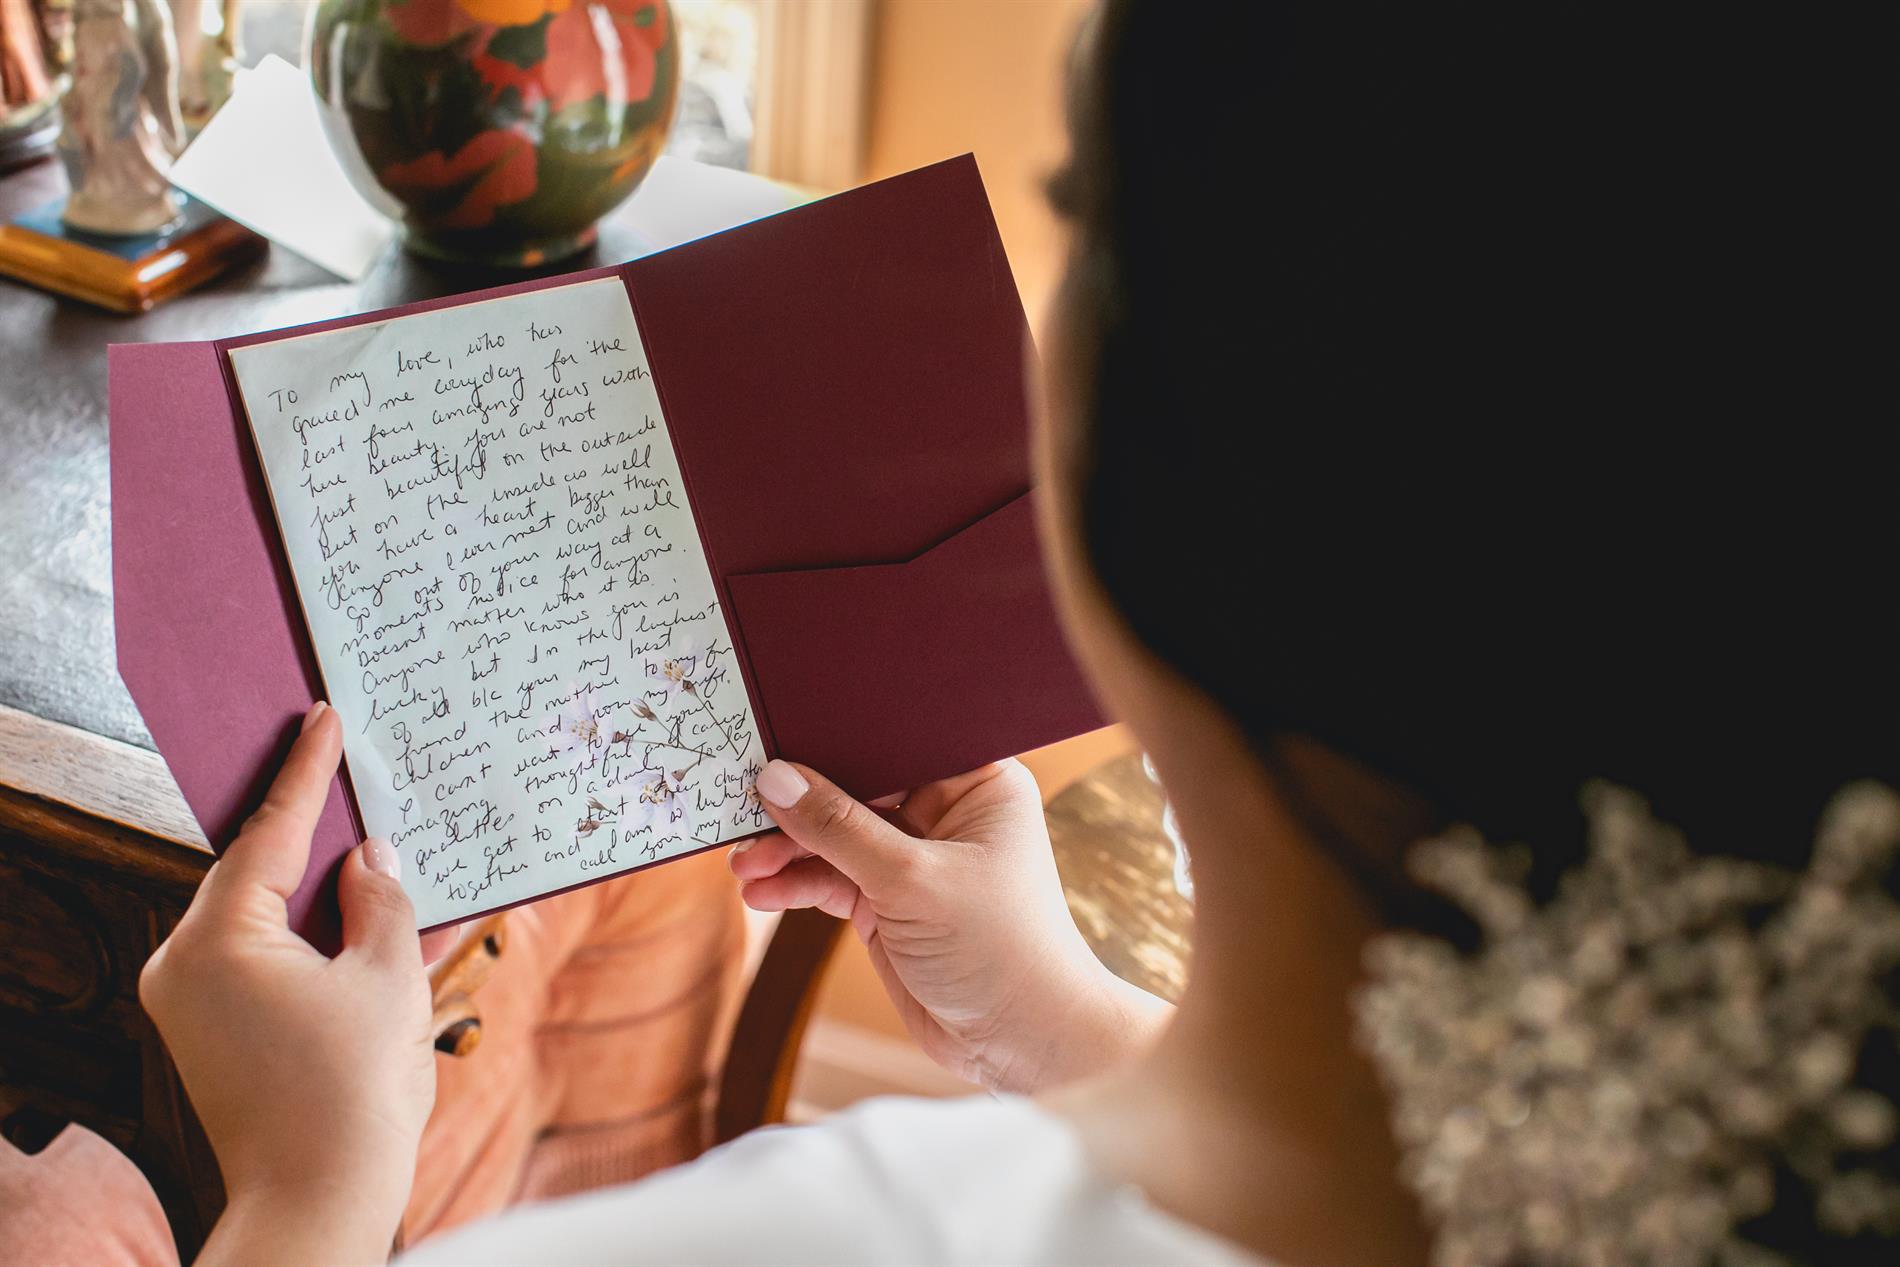 To my love, who has
graced me everyday for the
last four amazing years with
here beauty. You are not
just beautiful on the outside
but on the inside as well
you have a heart bigger than
anyone I ever met and will
go out of your way at a
moments notice for anyone.
Doesnt matter who it is.
Anyone who knows you is
lucky but I'm the luckest
of all b/c your my best
friend the mother to my
children and now my wife.
I cant wait to see your
amazing thoughtful and caring
qualities on a daily Today
we get to start a new chapter
together and I am so lucky to
call you my wife